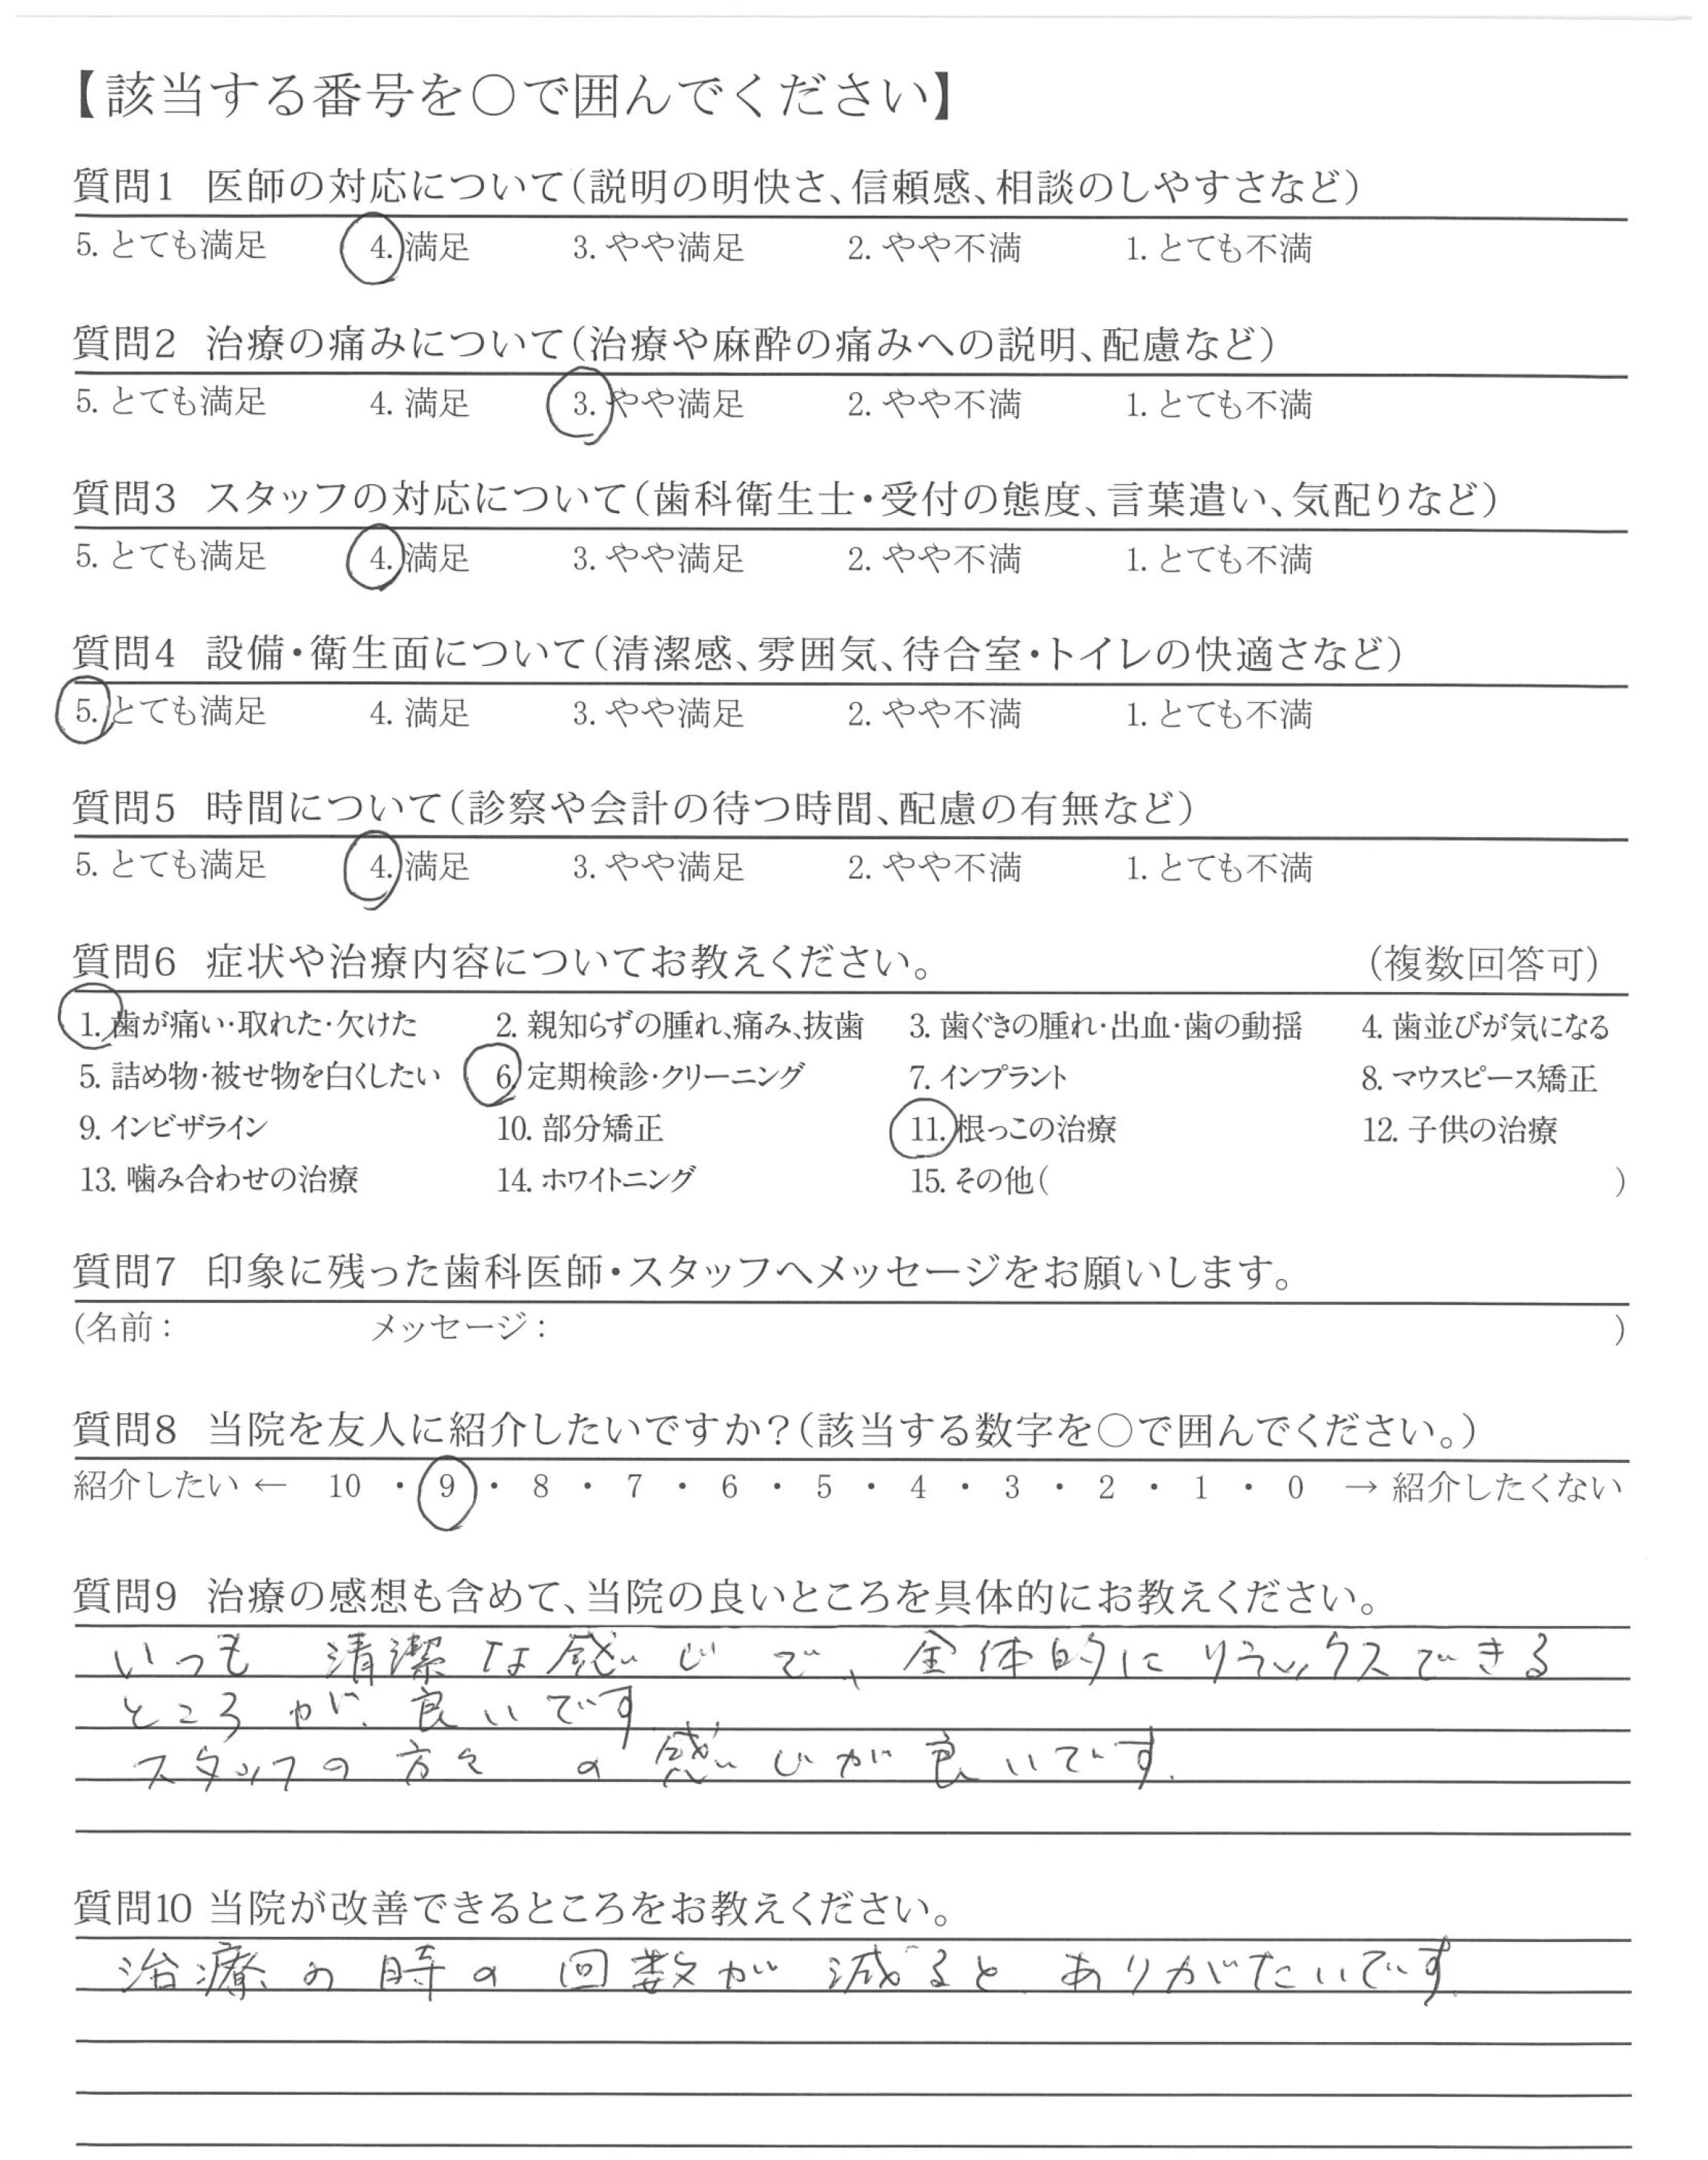 【該当する番号を○で囲んでください】
質問1 医師の対応について（説明の明快さ、信頼感、相談のしやすさなど）
5. とても満足 4. 満足 3. やや満足 2. やや不満 1. とても不満
質問2 治療の痛みについて（治療や麻酔の痛みへの説明、配慮など）
5. とても満足 4. 満足 3. やや満足 2. やや不満 1. とても不満
質問3 スタッフの対応について（歯科衛生士・受付の態度、言葉遣い、気配りなど）
5. とても満足 4. 満足 3. やや満足 2. やや不満 1. とても不満
質問4 設備・衛生面について（清潔感、雰囲気、待合室・トイレの快適さなど）
5. とても満足 4. 満足 3. やや満足 2. やや不満 1. とても不満
質問5 時間について（診察や会計の待つ時間、配慮の有無など）
5. とても満足 4. 満足 3. やや満足 2. やや不満 1. とても不満
質問6 症状や治療内容についてお教えください。 （複数回答可）
1. 歯が痛い・取れた・欠けた 2. 親知らずの腫れ、痛み、抜歯 3. 歯ぐきの腫れ・出血・歯の動揺 4. 歯並びが気になる
5. 詰め物・被せ物を白くしたい 6. 定期検診・クリーニング 7. インプラント 8. マウスピース矯正
9. インビザライン 10. 部分矯正 11. 根っこの治療 12. 子供の治療
13. 噛み合わせの治療 14. ホワイトニング 15. その他（ ）
質問7 印象に残った歯科医師・スタッフへメッセージをお願いします。
（名前： メッセージ： ）
質問8 当院を友人に紹介したいですか？（該当する数字を○で囲んでください。）
紹介したい ← 10 ・ 9 ・ 8 ・ 7 ・ 6 ・ 5 ・ 4 ・ 3 ・ 2 ・ 1 ・ 0 → 紹介したくない
質問9 治療の感想も含めて、当院の良いところを具体的にお教えください。
いつも 清潔な感じで、全体的にリラックスできる
ところが、良いです
スタッフの方々の感じが良いです.
質問10 当院が改善できるところをお教えください。
治療の時の回数が減ると ありがたいです.